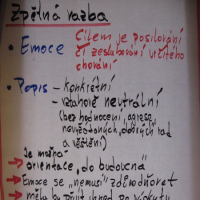 Zpětná vazba
• Emoce
Cílem je posilování
či zeslabování určitého
chování
• Popis – konkrétní
– vztahově neutrální
(bez hodnocení, agrese
nevyžádaných, dobrých rad
a věštění)
Je možná
orientace „do budoucna“
Emoce se „nemusí“ zdůvodňovat
měla by přijít ihned po